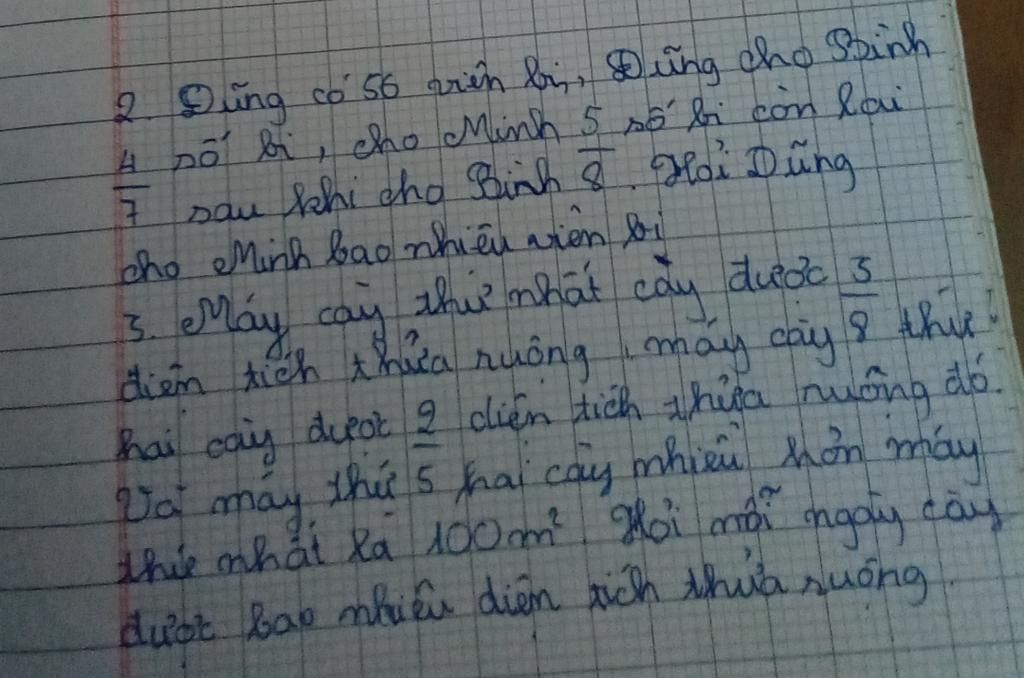 2. Dũng có 56 viên bi, Dũng cho Bình
4/7 số bi, cho Minh 5/8 số bi còn lại
sau khi cho Bình. Hỏi Dũng
cho Minh bao nhiêu viên bi
3. Máy cày thứ nhất cày được 3/8
diện tích thửa ruộng, máy cày thứ
hai cày được 2/5 diện tích thửa ruộng đó.
Và máy thứ hai cày nhiều hơn máy
thứ nhất là 100m². Hỏi mỗi ngày cày
được bao nhiêu diện tích thửa ruộng.